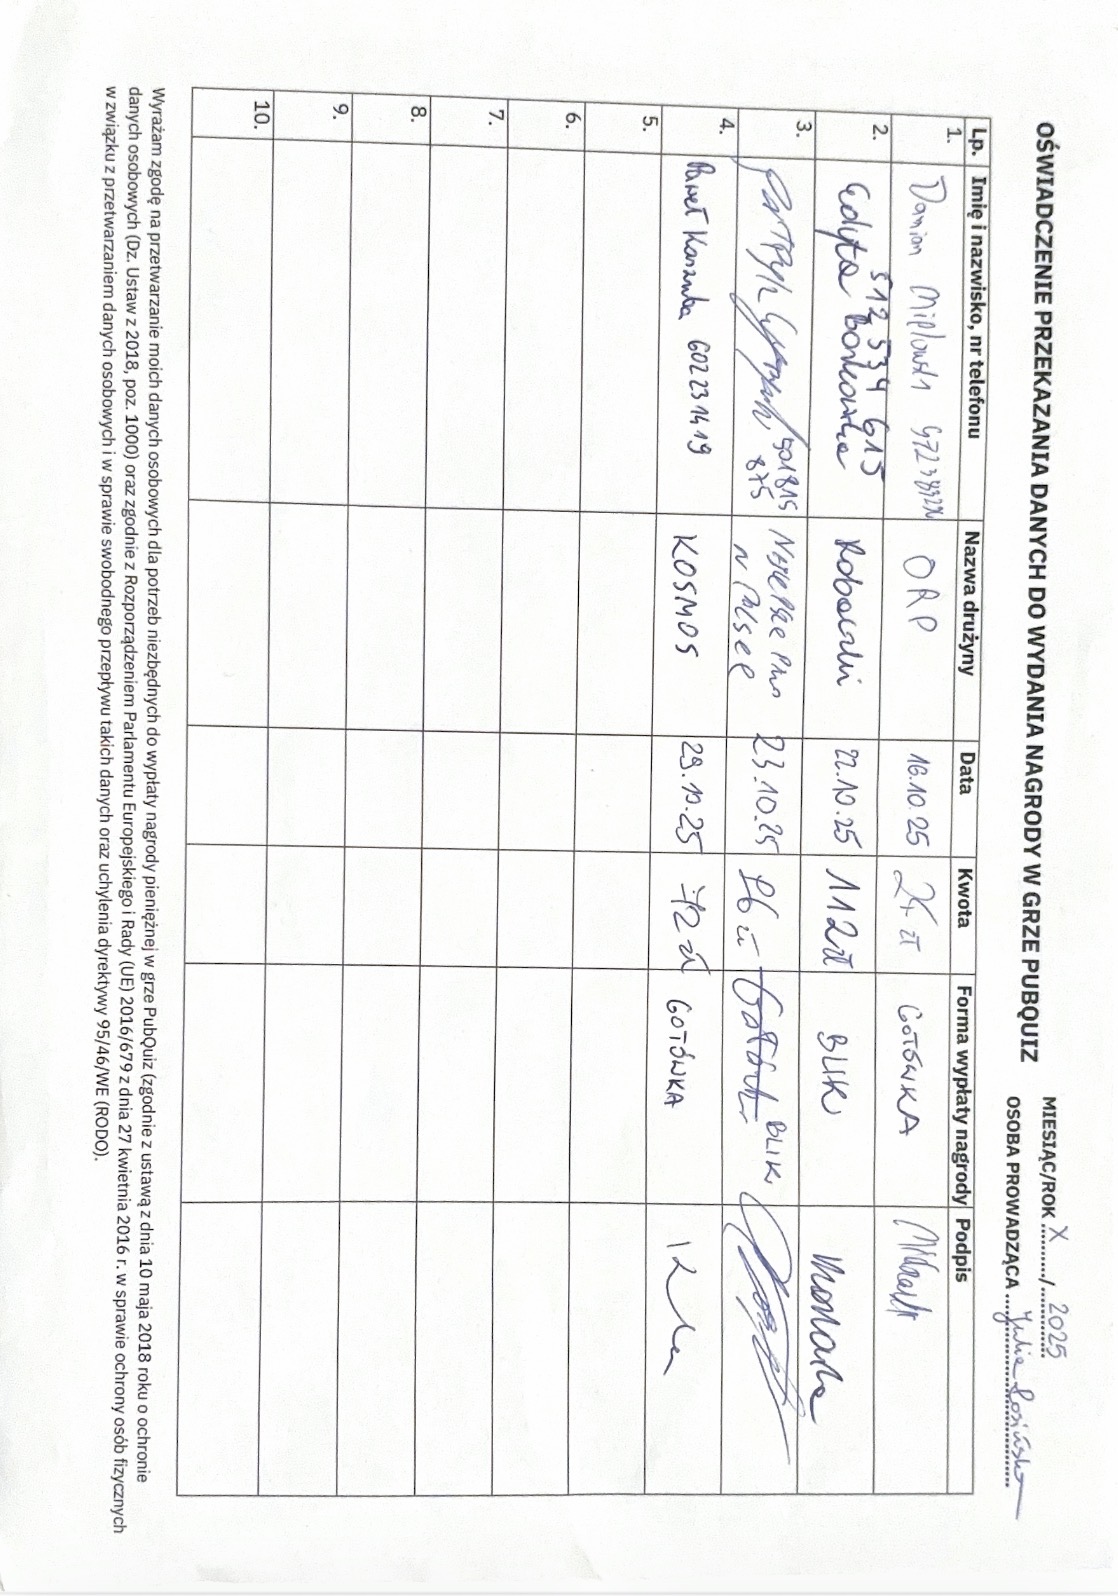 OŚWIADCZENIE PRZEKAZANIA DANYCH DO WYDANIA NAGRODY W GRZE PUBQUIZ
MIESIĄC/ROK X / 2025
OSOBA PROWADZĄCA Julia
Lp. Imię i nazwisko, nr telefonu Nazwa drużyny Data Kwota Forma wypłaty nagrody Podpis
1. Damian ORP 16.10.25 24 zł GOTÓWKA
512 534 615
2. Edyta Borkowska Robaczki 22.10.25 112 zł BLIK
3. Patryk 501 815 23.10.25 BLIK
875 w Polsce
4. Paweł 602231419 KOSMOS 29.10.25 72 zł GOTÓWKA
5.
6.
7.
8.
9.
10.
Wyrażam zgodę na przetwarzanie moich danych osobowych dla potrzeb niezbędnych do wypłaty nagrody pieniężnej w grze PubQuiz (zgodnie z ustawą z dnia 10 maja 2018 roku o ochronie
danych osobowych (Dz. Ustaw z 2018, poz. 1000) oraz zgodnie z Rozporządzeniem Parlamentu Europejskiego i Rady (UE) 2016/679 z dnia 27 kwietnia 2016 r. w sprawie ochrony osób fizycznych
w związku z przetwarzaniem danych osobowych i w sprawie swobodnego przepływu takich danych oraz uchylenia dyrektywy 95/46/WE (RODO).